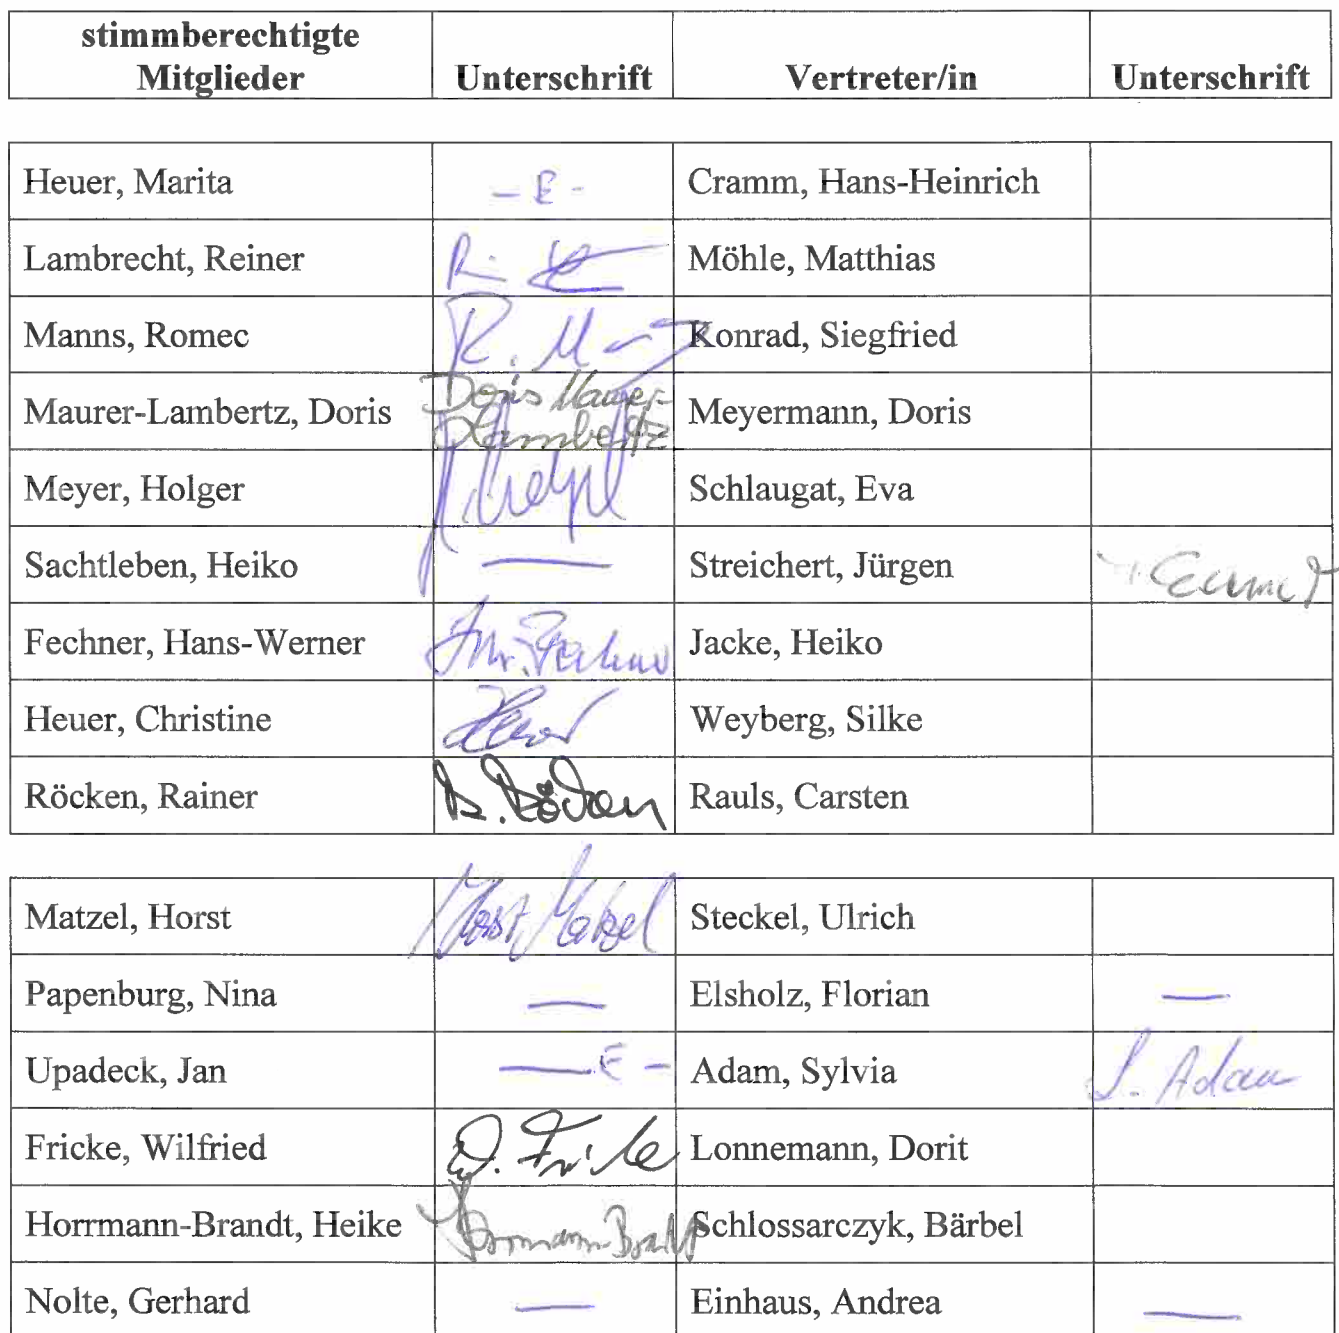 stimmberechtigte
Mitglieder Unterschrift Vertreter/in Unterschrift
Heuer, Marita – E – Cramm, Hans-Heinrich
Lambrecht, Reiner Möhle, Matthias
Manns, Romec Konrad, Siegfried
Maurer-Lambertz, Doris Doris Maurer-Lambertz Meyermann, Doris
Meyer, Holger Schlaugat, Eva
Sachtleben, Heiko — Streichert, Jürgen
Fechner, Hans-Werner Jacke, Heiko
Heuer, Christine Heuer Weyberg, Silke
Röcken, Rainer R. Röcken Rauls, Carsten
Matzel, Horst Horst Matzel Steckel, Ulrich
Papenburg, Nina — Elsholz, Florian —
Upadeck, Jan — E – Adam, Sylvia S. Adam
Fricke, Wilfried W. Fricke Lonnemann, Dorit
Horrmann-Brandt, Heike Horrmann-Brandt Schlossarczyk, Bärbel
Nolte, Gerhard — Einhaus, Andrea —